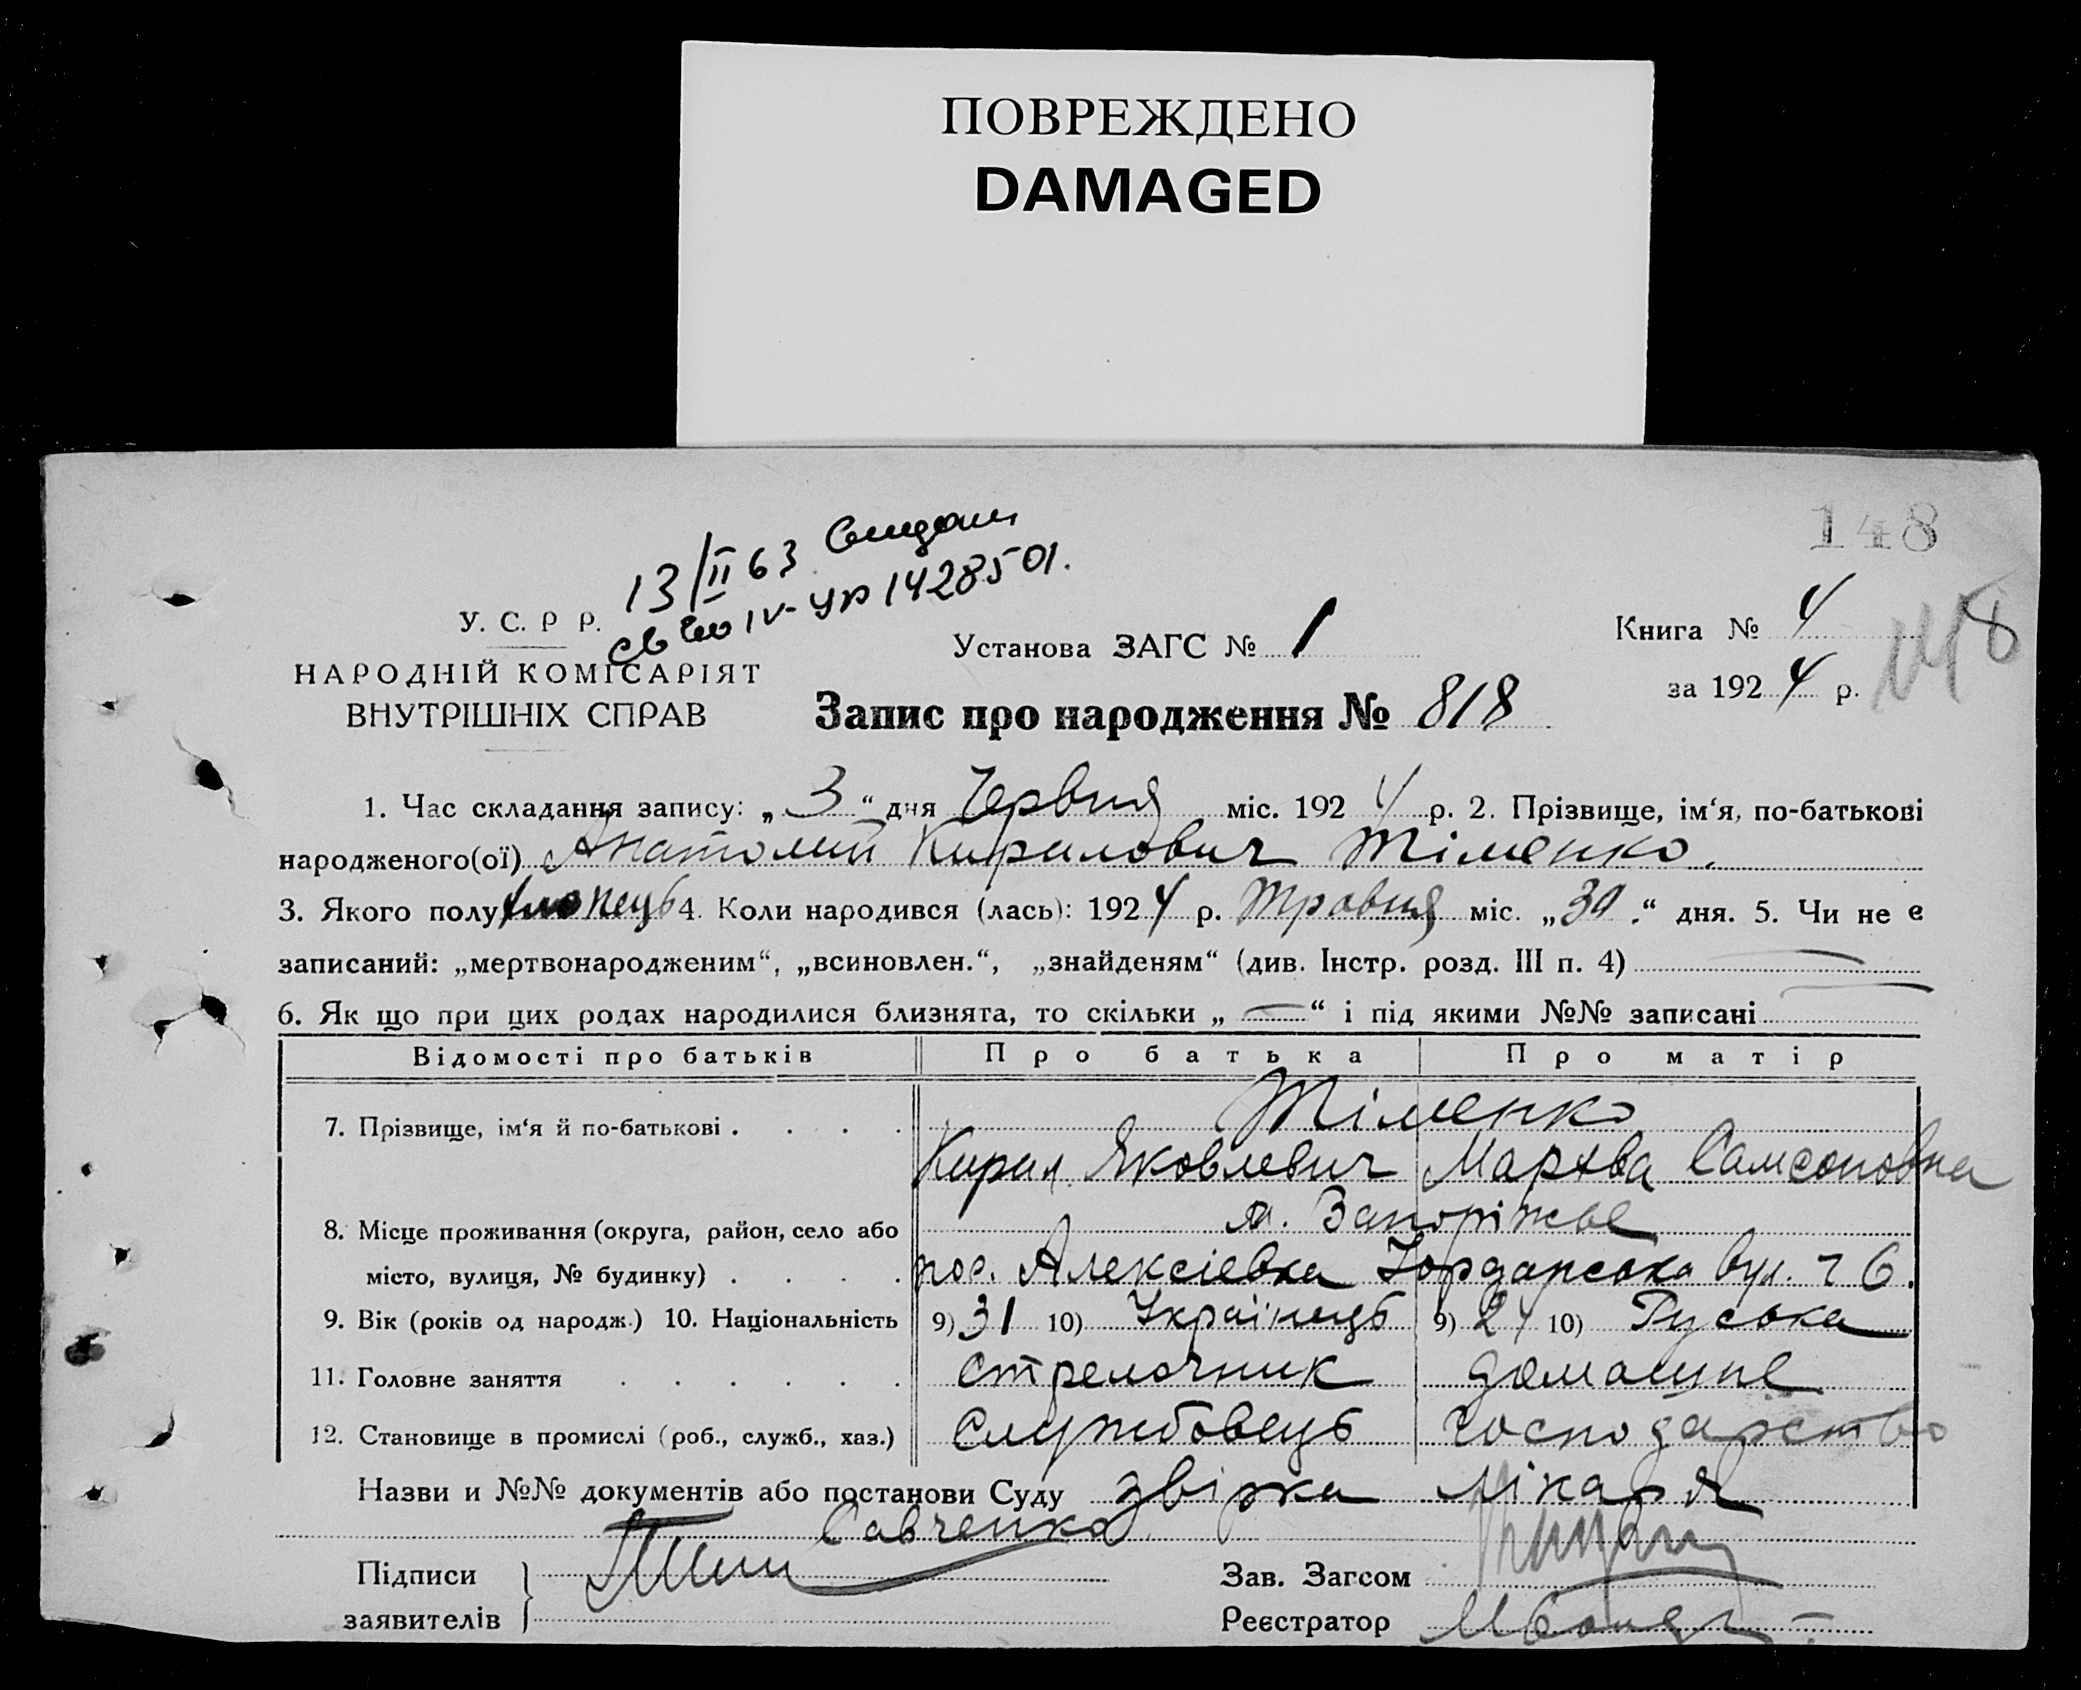 ПОВРЕЖДЕНО
DAMAGED
148
13/II 63 Видани
св во IV-УР 1428501.
У. С. Р Р.
НАРОДНІЙ КОМІСАРІЯТ
ВНУТРІШНІХ СПРАВ
Установа ЗАГС № 1
Книга № 4
за 1924 р.
148
Запис про народження № 818
1. Час складання запису: „3“ дня Червня міс. 1924 р. 2. Прізвище, ім‘я, по-батькові
народженого(ої) Анатолий Кирилович Тіменко.
3. Якого полу хлопець 4. Коли народився (лась): 1924 р. Травня міс. „30.“ дня. 5. Чи не є
записаний: „мертвонародженим“, „всиновлен.“, „знайденям“ (див. Інстр. розд. III п. 4) —
6. Як що при цих родах народилися близнята, то скільки „—“ і під якими №№ записані —
Відомості про батьків Про батька Про матір
7. Прізвище, ім‘я й по-батькові . . . . Тіменко
Кирил Яковлевич Мархва Самсоновна
8. Місце проживання (округа, район, село або м. Запоріжье
місто, вулиця, № будинку) . . . . пос. Алексієвка Іорданська вул. ч 6.
9. Вік (років од народж.) 10. Національність 9) 31 10) Українець 9) 24 10) Руська
11. Головне заняття . . . . . . стрелочник домашне
12. Становище в промислі (роб., служб., хаз.) Службовець господарство
Назви и №№ документів або постанови Суду звірка лікаря
Савченко
Підписи
заявителів
Зав. Загсом
Реєстратор